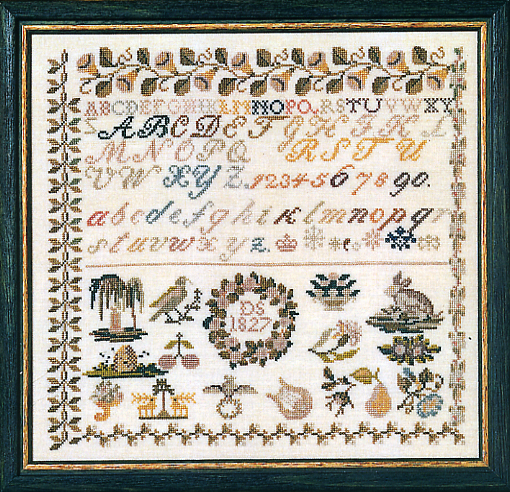 ABCDEFGHIKLMNOPQRSTUVWXY
Z ABCDEFGHIKL
MNOPQRSTU
VWXYZ.1234567890.
abcdefghiklmnopqr
stuvwxyz.
DS
1827